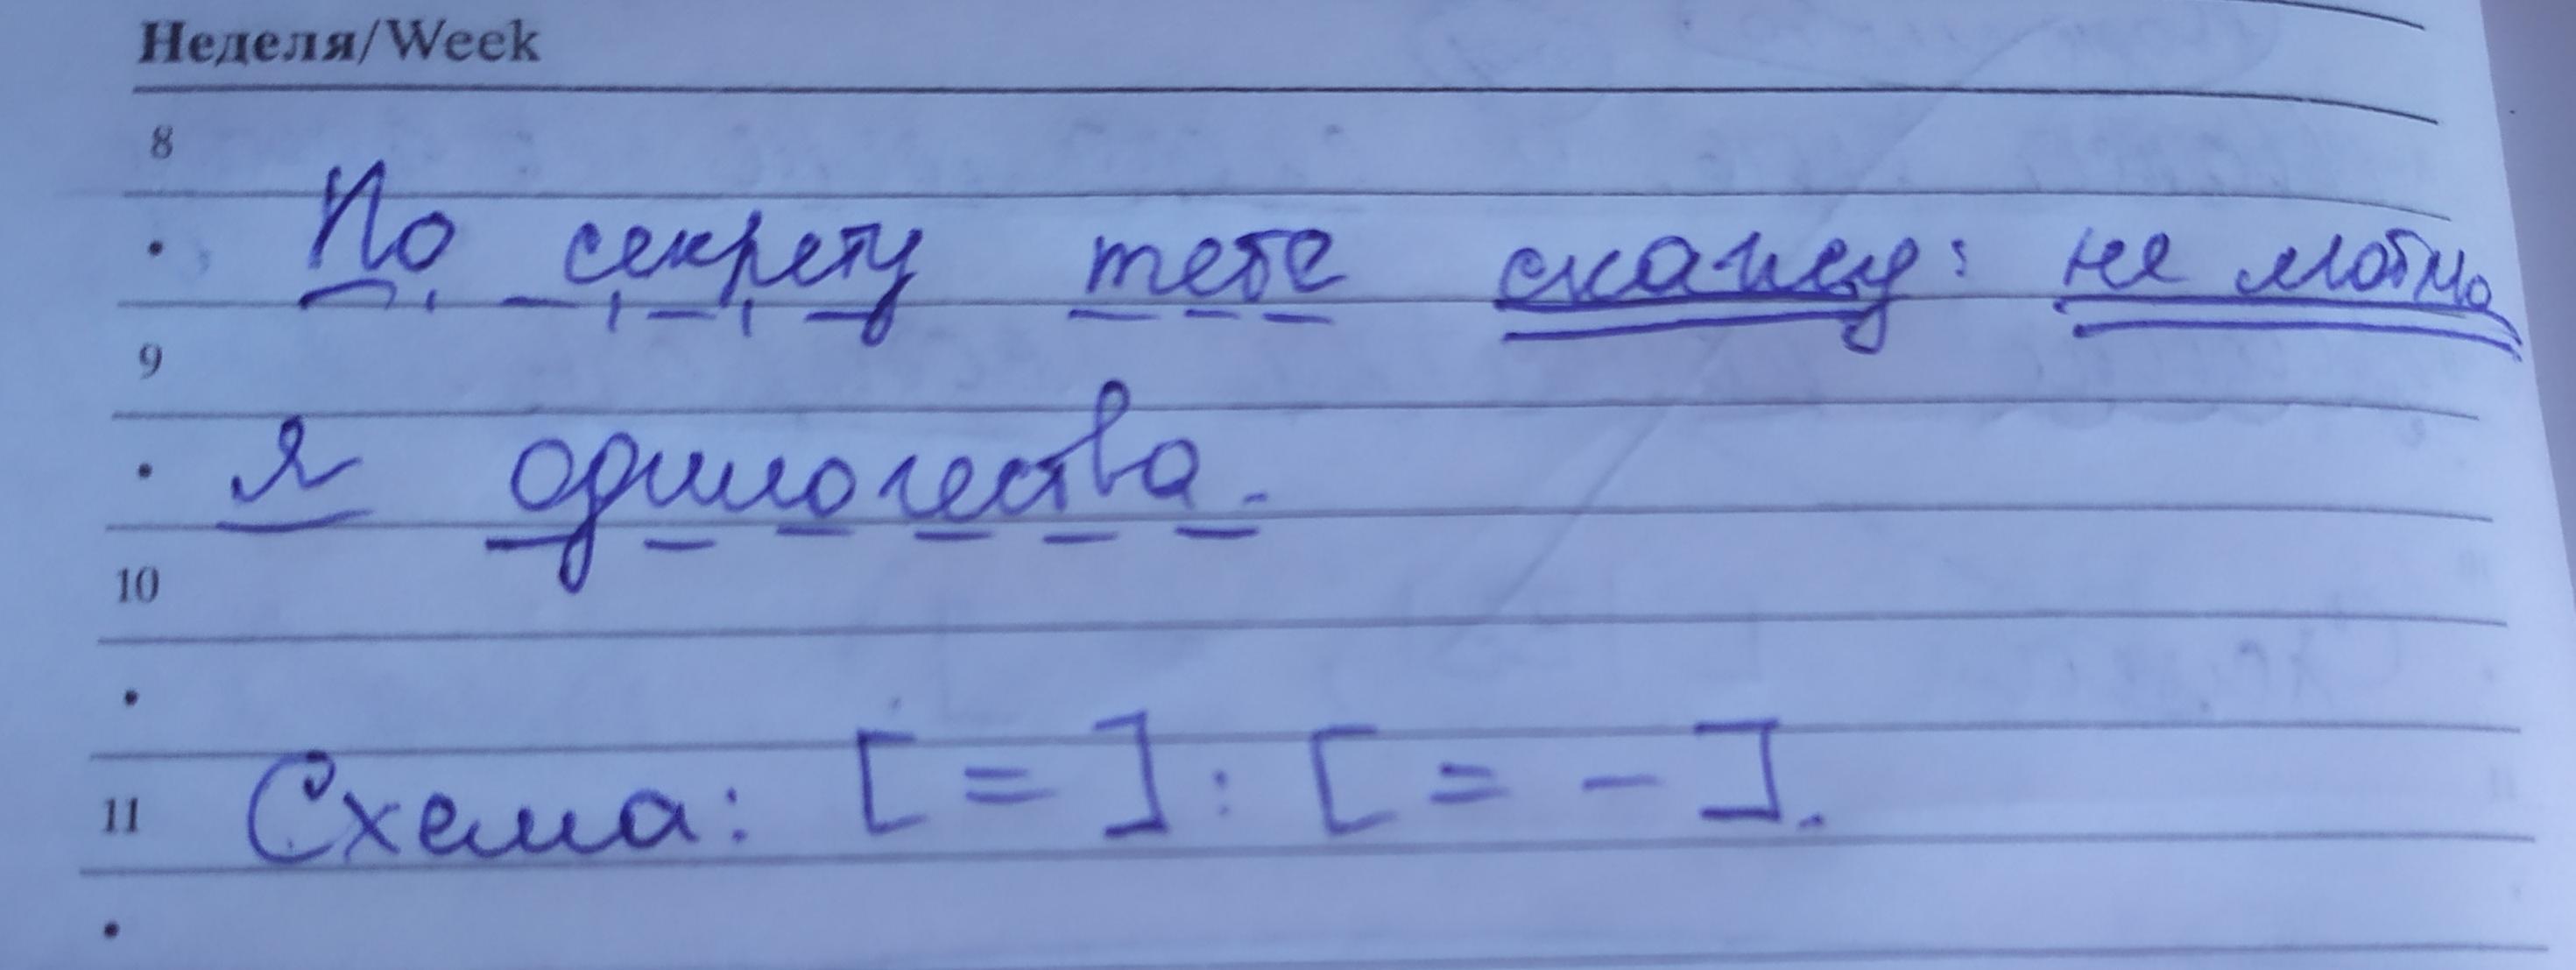 Неделя/Week
8
По секрету тебе скажу: не люблю
9
я одиночества.
10
11 Схема: [ = ] : [ = – ].